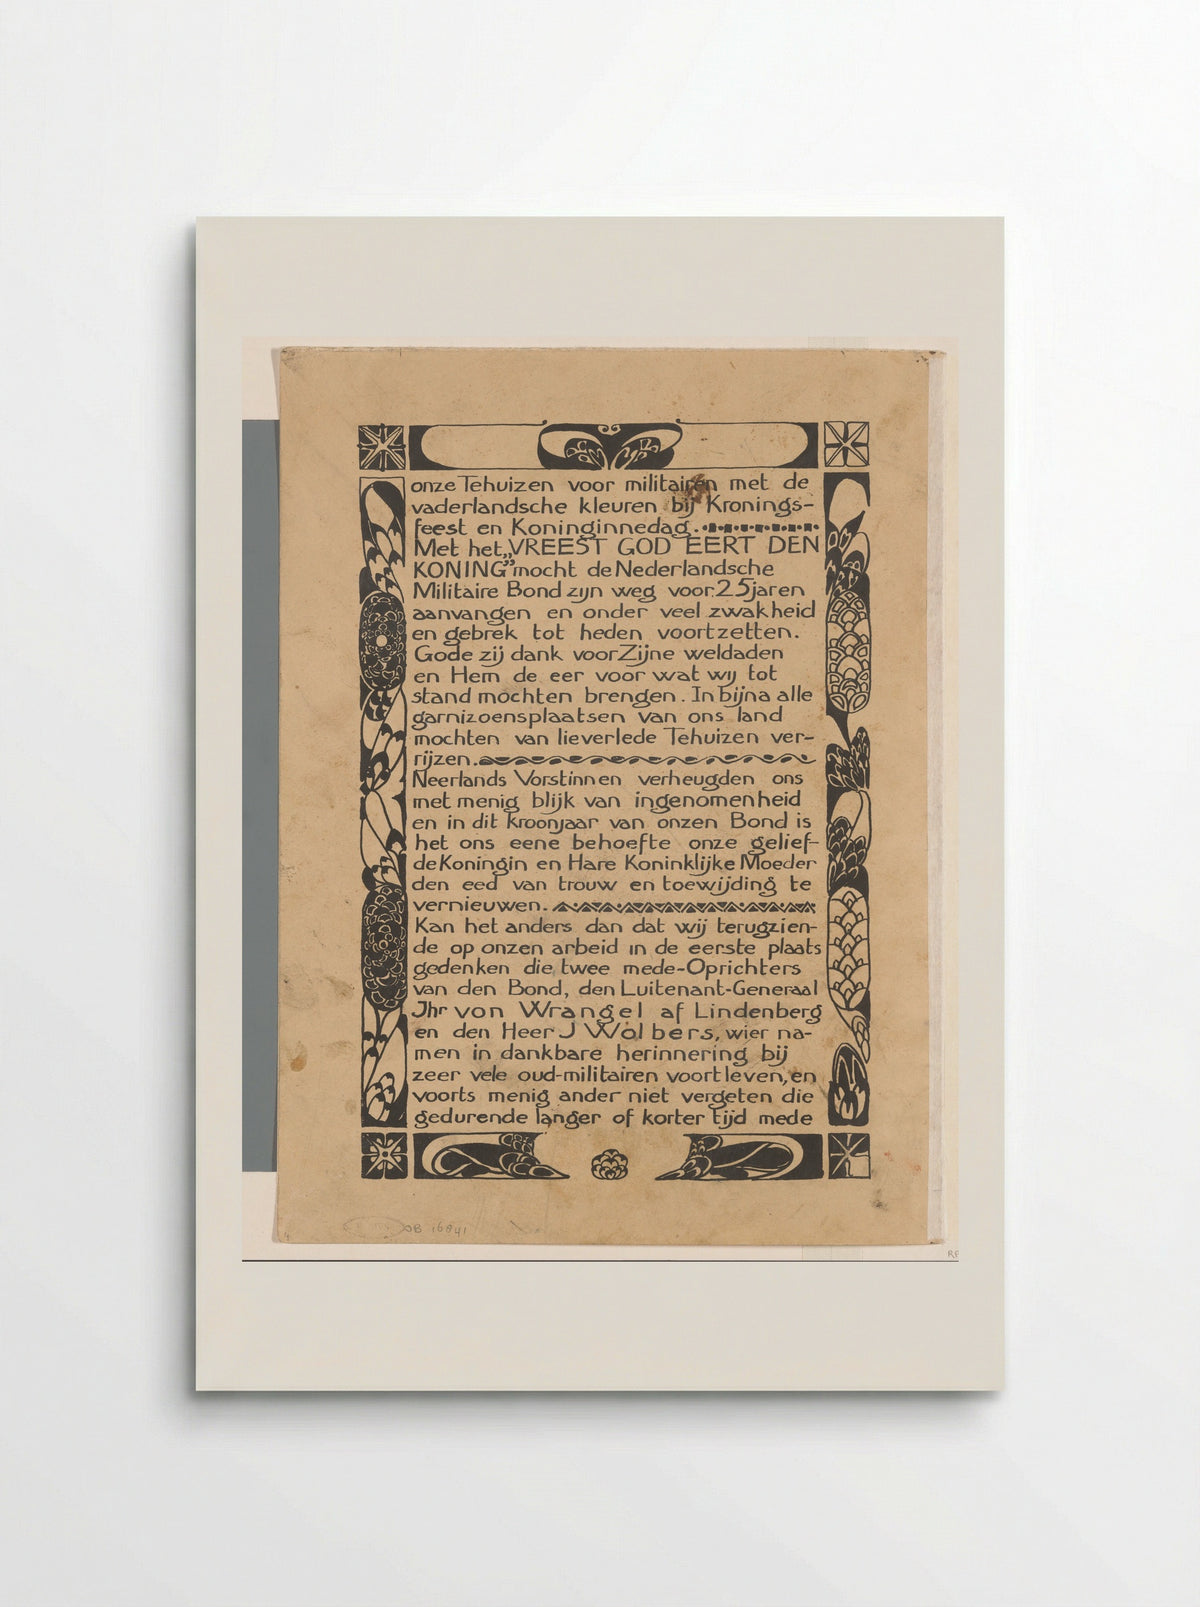 onze Tehuizen voor militairen met de
vaderlandsche kleuren bij Kronings-
feest en Koninginnedag.
Met het „VREEST GOD EERT DEN
KONING” mocht de Nederlandsche
Militaire Bond zijn weg voor 25 jaren
aanvangen en onder veel zwakheid
en gebrek tot heden voortzetten.
Gode zij dank voor Zijne weldaden
en Hem de eer voor wat wij tot
stand mochten brengen. In bijna alle
garnizoensplaatsen van ons land
mochten van lieverlede Tehuizen ver-
rijzen.
Neerlands Vorstinnen verheugden ons
met menig blijk van ingenomenheid
en in dit kroonjaar van onzen Bond is
het ons eene behoefte onze gelief-
de Koningin en Hare Koninklijke Moeder
den eed van trouw en toewijding te
vernieuwen.
Kan het anders dan dat wij terugzien-
de op onzen arbeid in de eerste plaats
gedenken die twee mede-Oprichters
van den Bond, den Luitenant-Generaal
Jhr von Wrangel af Lindenberg
en den Heer J Wolbers, wier na-
men in dankbare herinnering bij
zeer vele oud-militairen voortleven, en
voorts menig ander niet vergeten die
gedurende langer of korter tijd mede
OB 16841